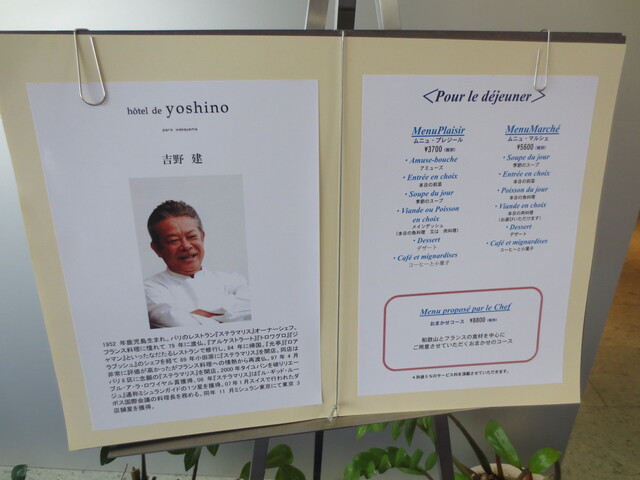 hôtel de yoshino
吉野 建
1952 年鹿児島生まれ。パリのレストラン『ステラマリス』オーナーシェフ。
フランス料理に憧れて 79 年に渡仏。『アルケストラート』『トロワグロ』『ジ
ャマン』といったなだたるレストランで修行し、84 年に帰国。『元亭』『ロア
ラブッシュ』のシェフを経て 89 年小田原に『ステラマリス』を開店。同店は
非常に評価が高かったがフランス料理への情熱から再渡仏。97 年 4 月
パリ 8 区に念願の『ステラマリス』を開店。2000 年タイユバンを破りリエー
ブル・ア・ラ・ロワイヤル賞獲得。06 年『ステラマリス』は『ル・ギッド・ルー
ジュ』通称ミシュランガイドの 1 ツ星を獲得。07 年 1 月スイスで行われたダ
ボス国際会議の料理長を務める。同年 11 月ミシュラン東京にて東京 3
店舗星を獲得。
<Pour le déjeuner>
MenuPlaisir
ムニュ・プレジール
¥3700 (税別)
・Amuse-bouche
アミューズ
・Entrée en choix
本日の前菜
・Soupe du jour
季節のスープ
・Viande ou Poisson
en choix
メインディッシュ
(本日の魚料理 又は 肉料理)
・Dessert
デザート
・Café et mignardises
コーヒーと小菓子
MenuMarché
ムニュ・マルシェ
¥5600 (税別)
・Soupe du jour
季節のスープ
・Entrée en choix
本日の前菜
・Poisson du jour
本日の魚料理
・Viande en choix
本日の肉料理
(お選びいただけます)
・Dessert
デザート
・Café et mignardises
コーヒーと小菓子
Menu proposé par le Chef
おまかせコース ¥8800 (税別)
和歌山とフランスの食材を中心に
ご用意させていただくおまかせのコース